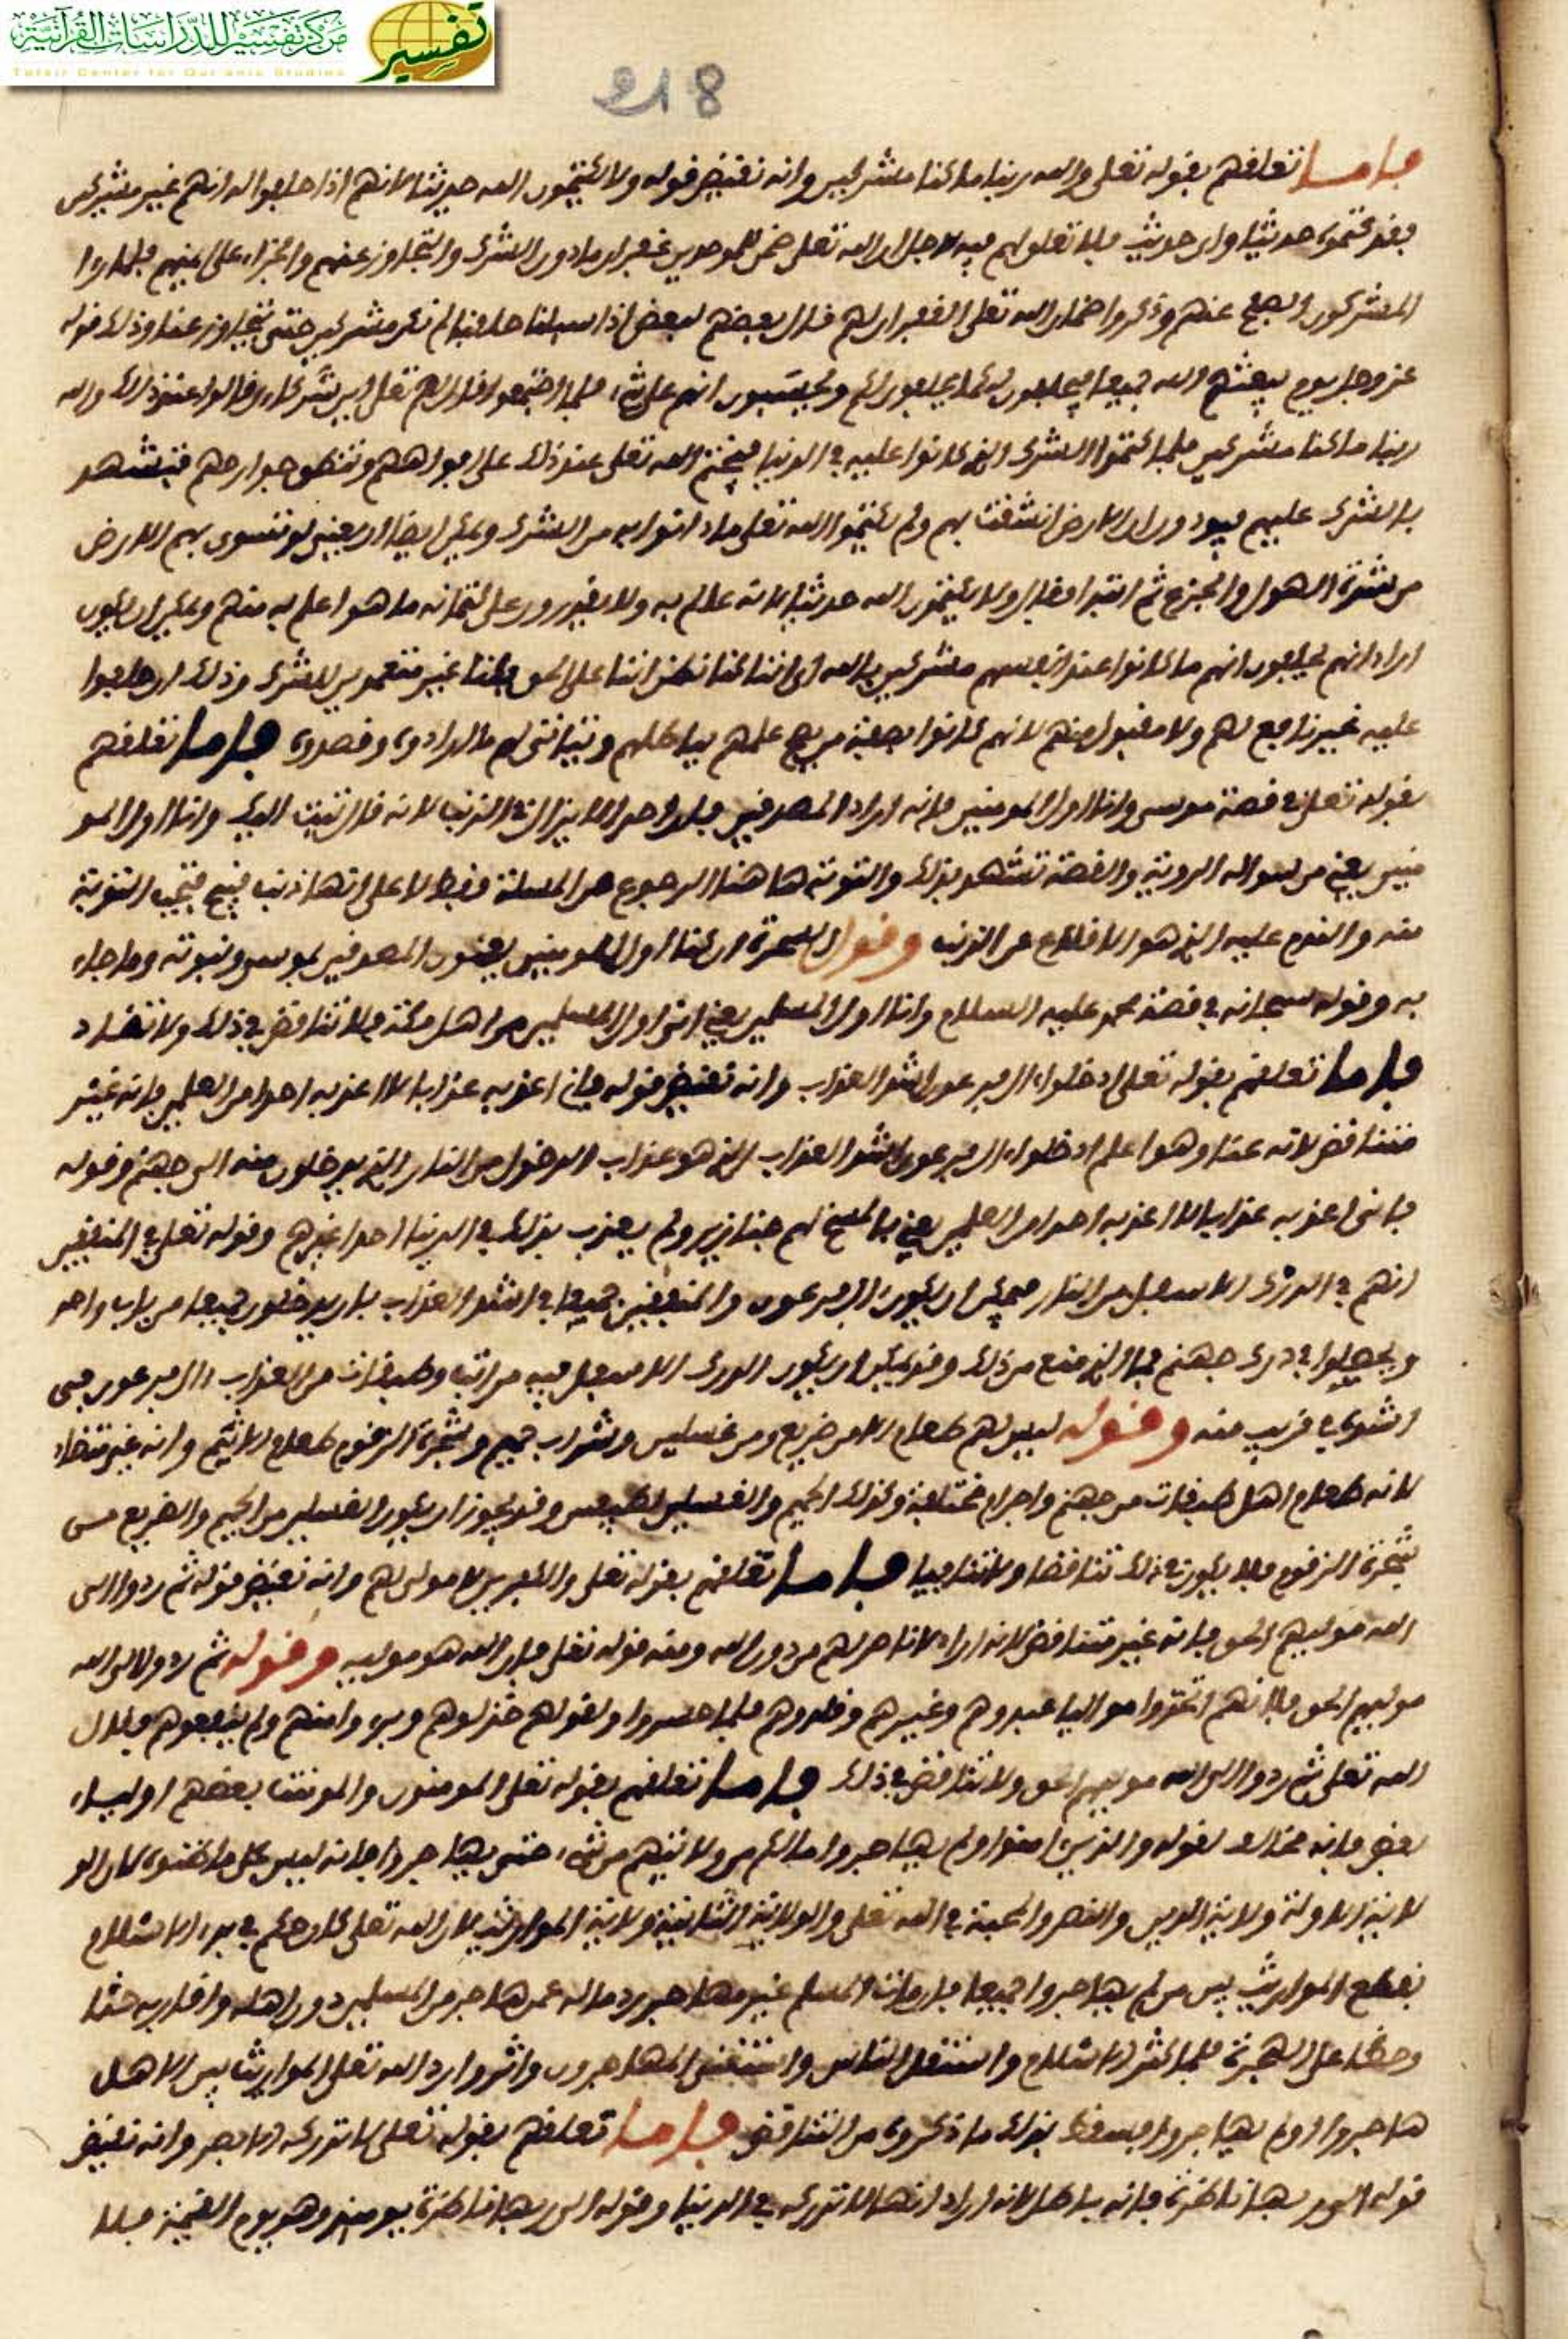 مركز تفسير للدراسات القرآنية
Tafsir Center for Qur'anic Studies
تفسير
218
فاما تعلقهم بقوله تعلى والله ربنا ما كنا مشركين وانه نقيض قوله ولا يكتمون الله حديثا لانهم اذا حلفوا له انهم غير مشركين
فقد كتموه حديثا واي حديث فلا تعلق لهم فيه لاجل ان الله تعلى ضمن للموحدين غفران ما دون الشرك والتجاوز عنهم والجزاء على فلما راوا
المشركون الصفح عنهم وذكروا ضمان الله تعلى الغفران لهم قال بعضهم لبعض اذا سيلنا حلفنا لم نكن مشركين حتى يتجاوز عنا وذلك قوله
عز وجل يوم يبعثهم الله جميعا فيحلفون له كما يحلفون لكم ويحسبون انهم على شيء فلما اجتمعوا قال لهم تعلى اين شركاءي قالوا عند ذلك والله
ربنا ما كنا مشركين فلما كتموا الشرك الذي كانوا عليه في الدنيا فيختم الله تعلى عند ذلك على افواههم وتنطق جوارحهم فتشهد
بالشرك عليهم فيودون ان الارض انشقت بهم ولم يكتموا الله تعلى ما دانوا به من الشرك ويمكن ايضا ان يعني لو تسوى بهم الارض
من شدة الهول والجزع ثم ابتدا فقال ولا يكتمون الله حديثا لانه عالم به ولا يقدرون على كتمانه ما هو اعلم به منهم ويمكن ان يكون
اراد انهم يحلفون انهم ما كانوا عند انفسهم مشركين بالله اي اننا كنا نظن اننا على الحق وكنا غير متعمدين للشرك وذلك ان حلفوا
عليه غير نافع لهم ولا مقبول منهم لانهم كانوا بصفة من يصح علمهم بباطلهم ما ارادوه وقصدوه فاما تعلقهم
بقوله تعلى في قصة موسى وانا اول المومنين فانه اراد المصدقين بان احدا لا يراك في الدنيا لانه قال تبت اليك وانا اول المو
منين يعني من سواله الروية والقصة تشهد بذلك والتوبة هاهنا الرجوع عن المسلة فقط لا على انها ذنب قبيح فتجب التوبة
منه والندم عليه الذي هو الاقلاع عن الذنب وقول السحرة ان كنا اول المومنين يعنون المصدقين بموسى ونبوته وما جاء
به وقوله سبحانه في قصة محمد عليه السلام وانا اول المسلمين يعني اني اول المسلمين من اهل مكة فلا تناقض في ذلك ولا تضاد
فاما تعلقهم بقوله تعلى ادخلوا ال فرعون اشد العذاب وانه نقيض قوله فاني اعذبه عذابا لا اعذبه احدا من العلمين فانه غير
متناقض لانه عنا وهو اعلم ادخلوا ال فرعون اشد العذاب الذي هو عذاب الدخول من النار الذي يدخلون منه الى جهنم وقوله
فاني اعذبه عذابا لا اعذبه احدا من العلمين يعني بالمسخ لهم خنازير ولم يعذب بذلك في الدنيا احدا غيرهم وقوله تعلى في المنفقين
انهم في الدرك الاسفل من النار فيمكن ان يكون ال فرعون والمنفقين جميعا في اشد العذاب بان يدخلون جميعا من باب واحد
ويجعلوا في درك جهنم فما الذي منع من ذلك وقد يمكن ان يكون الدرك الاسفل فيه مراتب وطبقات من العذاب وال فرعون في
اشده او قريب منه وقوله ليس لهم طعام الا من ضريع ومن غسلين وشراب حميم وشجرة الزقوم طعام الاثيم وانه غير متضاد
لانه طعام اهل طبقات من جهنم واجرام مختلفة وكذلك الحميم والغسلين وقد يجوز ان يكون الغسلين من الحميم والضريع من
شجرة الزقوم فلا يكون في ذلك تناقضا ولا تنافيا فاما تعلقهم بقوله تعلى والكفرين لا مولى لهم وانه نقيض قوله ثم ردوا الى
الله موليهم الحق فانه غير متناقض لانه اراد لا ناصر لهم من دون الله ومنه قوله تعلى فان الله هو موليه وقوله ثم ردوا الى الله
موليهم الحق فلانهم اتخذوا مواليا عبدوهم وغيرهم وقلدوهم فلما خذلوهم وتبرءوا منهم ولم ينفعوهم قال
الله تعلى ثم ردوا الى الله موليهم الحق ولا تناقض في ذلك فاما تعلقهم بقوله تعلى المومنون والمومنت بعضهم اولياء
بعض فانه مخالف لقوله والذين امنوا ولم يهاجروا ما لكم من ولايتهم من شيء حتى يهاجروا فانه ليس على ما ظنوه لان الو
لاية الاولة ولاية الدين والنصر والمحبة في الله تعلى والولاية الثانية ولاية المواريث لان الله تعلى كان حكم في بدء الاسلام
بقطع المواريث بين من لم يهاجروا جميعا فان مات المسلم غير مهاجر رد ماله عمن هاجر من المسلمين دون اهله واقاربه حثا
وحضا على الهجرة فلما كثر الاسلام واستقل الناس واستغنى المهاجرون واثروا رد الله تعلى المواريث بين الاهل
هاجروا او لم يهاجروا فسقط بذلك ما ذكروه من التناقض فاما تعلقهم بقوله تعلى لا تدركه الابصر وانه نقيض
قوله الى ربها ناظرة فانه باطل لانه اراد انها لا تدركه في الدنيا وقوله الى ربها ناظرة يومئذ وهو يوم القيمة فلا